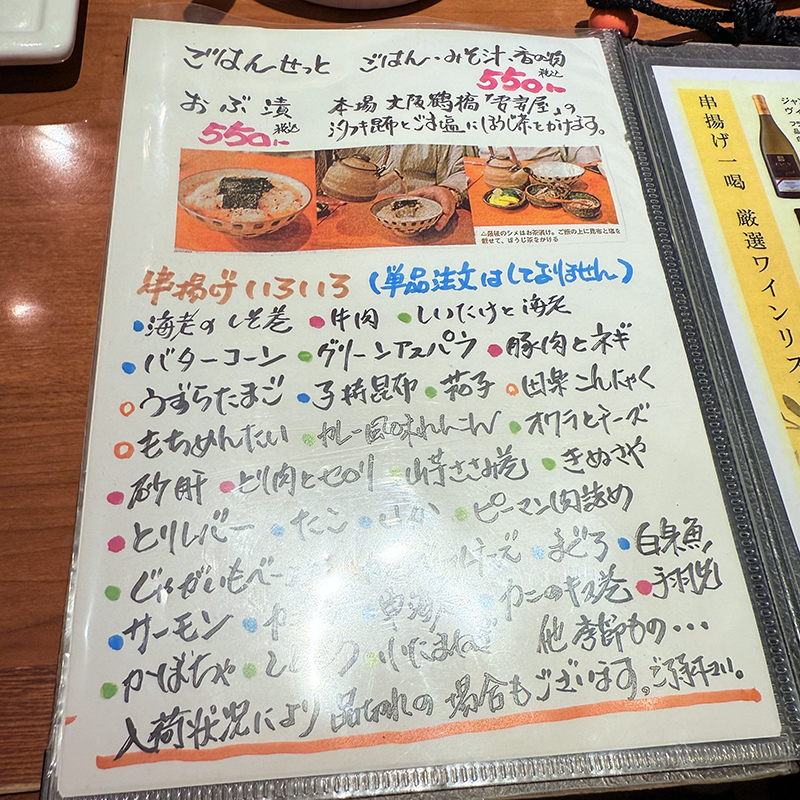 ごはんせっと ごはん・みそ汁・香の物
550円 税込
おぶ漬 本場 大阪鶴橋「 」の
550円 税込 汐フキ昆布とごま塩にほうじ茶をかけます。
最後のシメはお茶漬け。ご飯の上に昆布と塩を
載せて、ほうじ茶をかける
串揚げいろいろ (単品注文はしておりません)
海老のしそ巻 牛肉 しいたけと海老
バターコーン グリーンアスパラ 豚肉とネギ
うずらたまご 子持昆布 茄子 田楽こんにゃく
もちめんたい カレー風味れんこん オクラとチーズ
砂肝 とり肉とセロリ 山芋ささみ巻 きぬさや
とりレバー たこ いか ピーマン肉詰め
じゃがいもベー チーズ まぐろ 白身魚
サーモン カニのキス巻 手羽先
かぼちゃ 小たまねぎ 他季節もの・・・
入荷状況により品切れの場合もございます。ご了承下さい。
串揚げ一喝 厳選ワインリス
ジャン
ヴィ
フラ